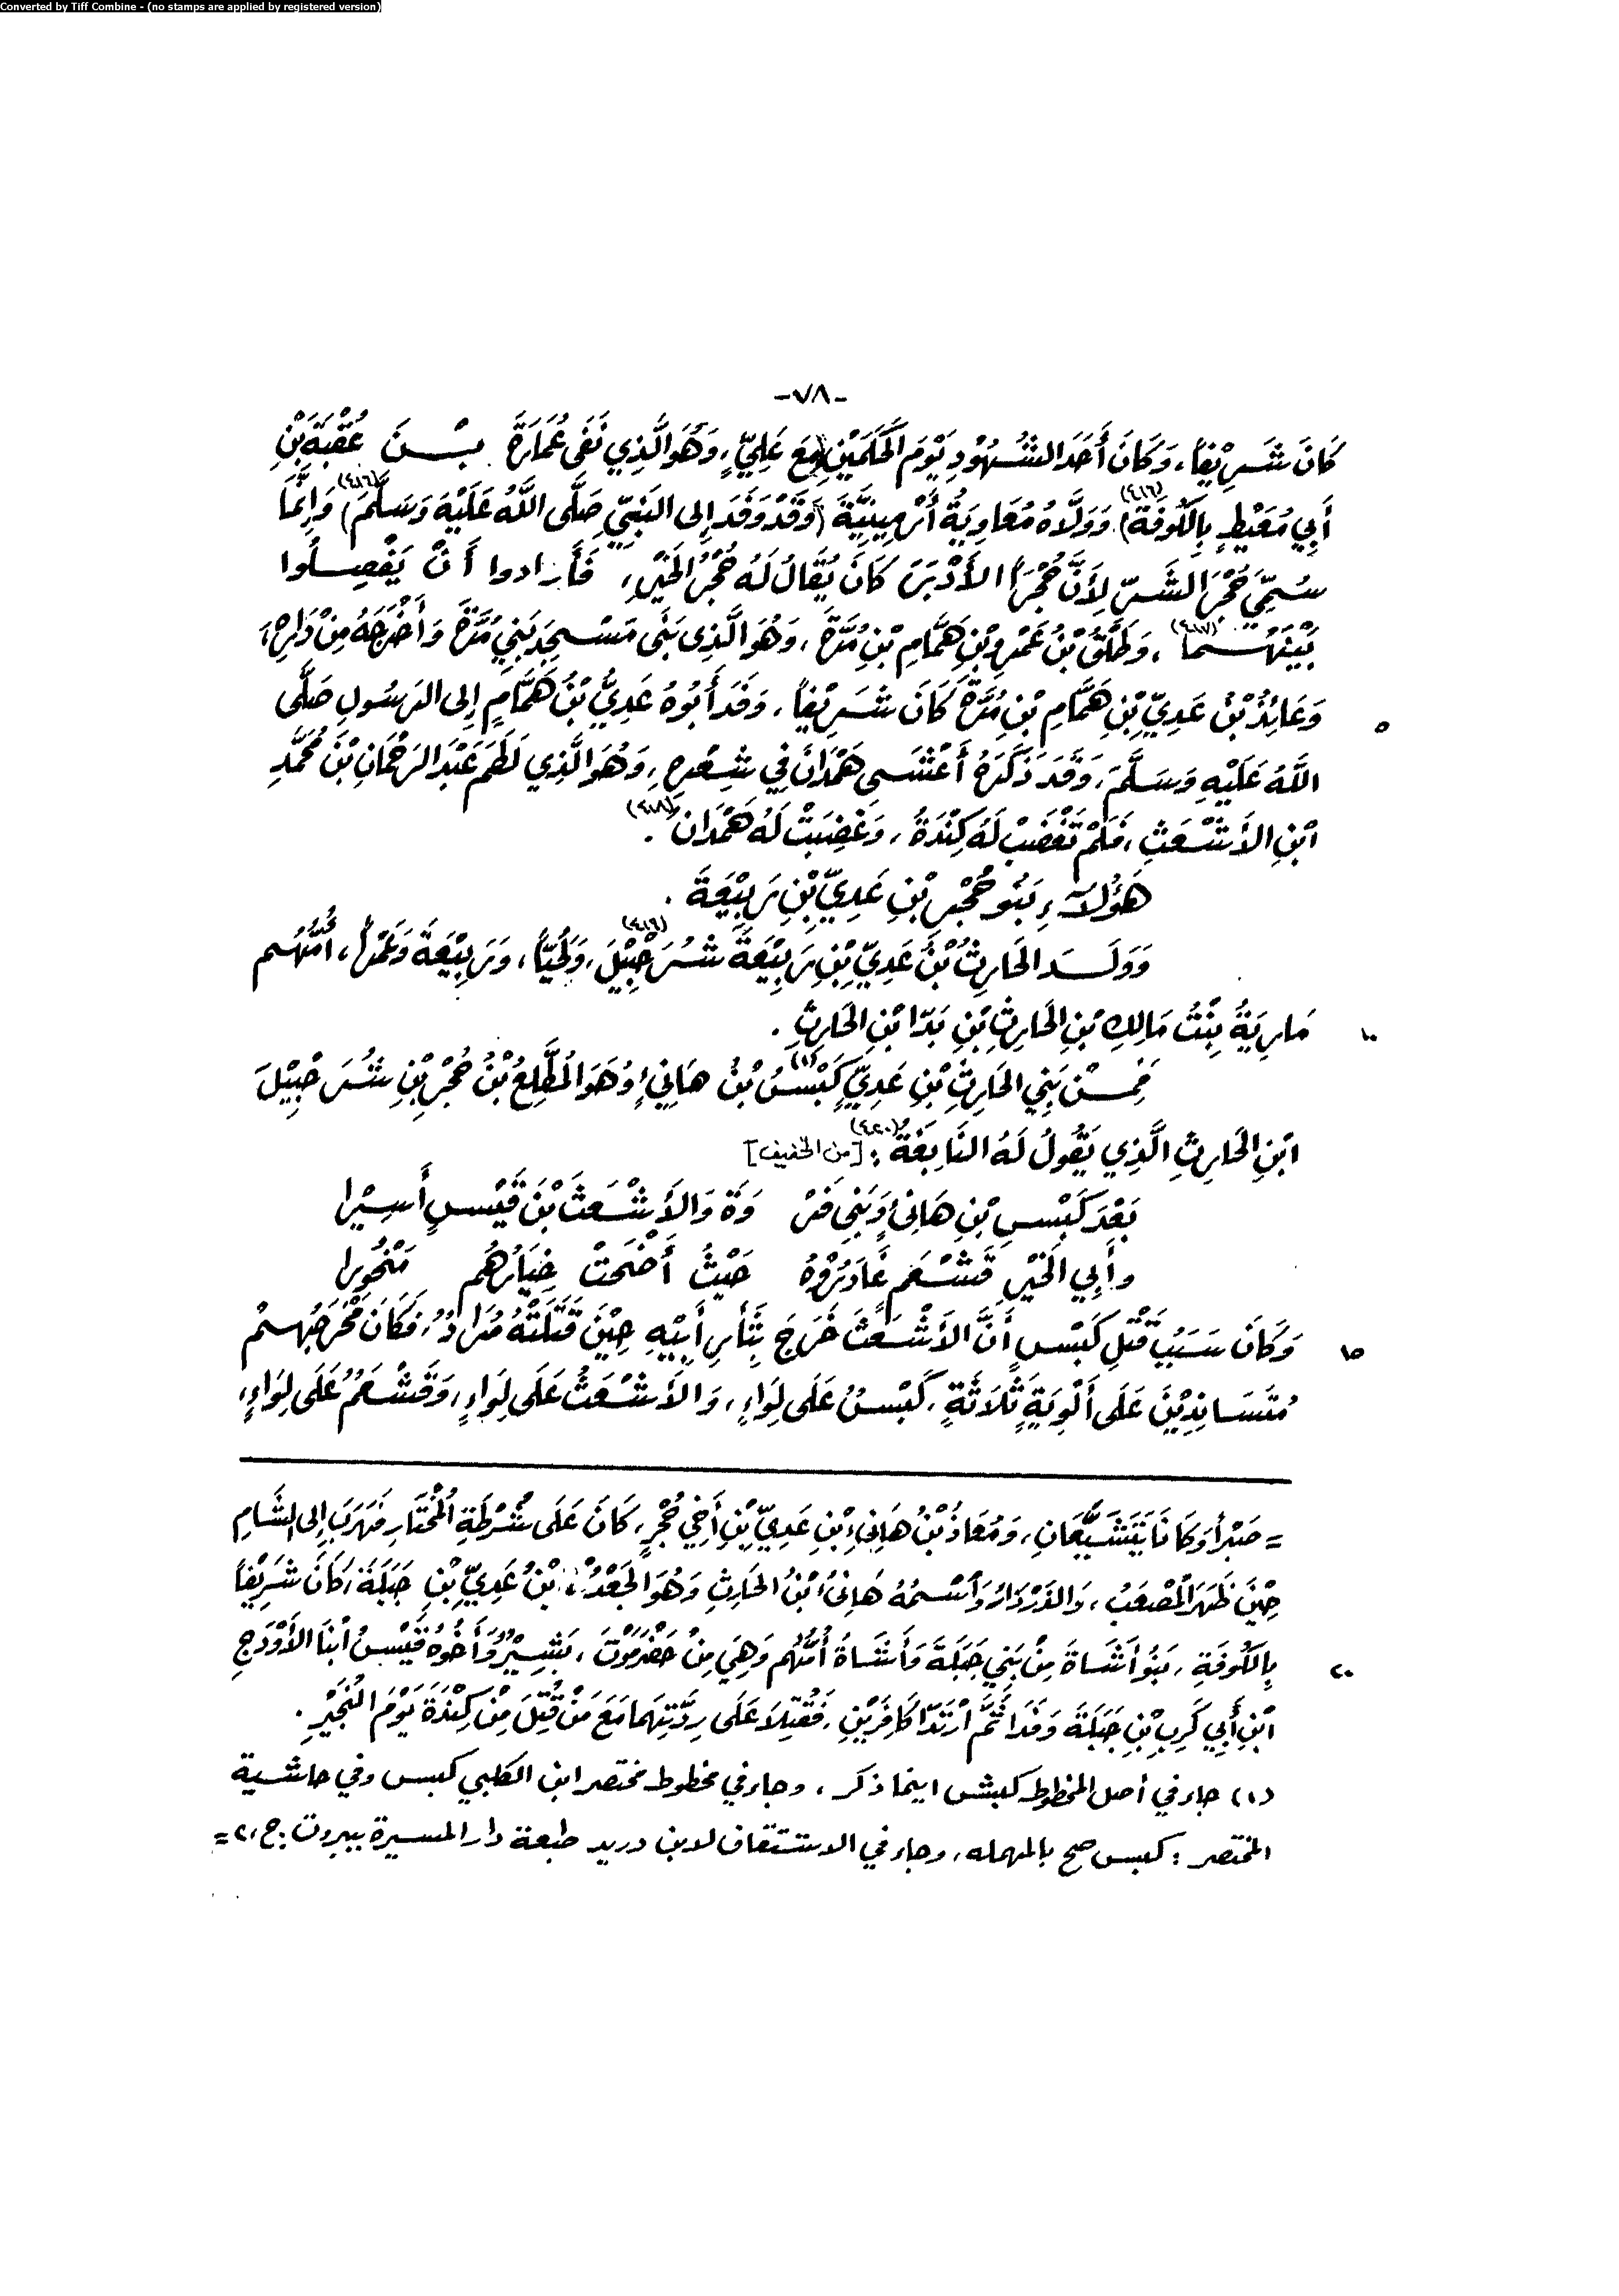 Converted by Tiff Combine - (no stamps are applied by registered version)
-٧٨-
كَانَ شَرِيْفاً، وَكَانَ أَحَدَ الشُّهُوْدِ يَوْمَ الحَكَمَيْنِ مَعَ عَلِيٍّ، وَهُوَ الَّذِي نَفَى عُمَارَةَ بْنَ عُقْبَةَ بْنِ
أَبِي مُعَيْطٍ بِالكُوفَةِ (٤١٦)، وَوَلَّاهُ مُعَاوِيَةُ أَرْمِينِيَّةَ (وَقَدْ وَفَدَ إِلى النَبِيِّ صَلَّى اللَّهُ عَلَيْهَ وَسَلَّمَ) (٤١٦) وَإِنَّمَا
سُمِّيَ حُجْرَ الشَّرِّ لِأَنَّ حُجْرَاً الأَدْبَرَ كَانَ يُقَالُ لَهُ حُجْرُ الخَيْرِ، فَأَرَادوا أَنْ يَفْصِلُوا
بَيْنَهُمَا (٤١٧)، وَطَلْقُ بْنُ عَمْرِو بْنِ هَمَّامِ بْنِ مُرَّةَ، وَهُوَ الَّذِى بَنَى مَسْجِدَ بَنِي مُرَّةَ وَأَخْرَجَهُ مِنْ دَارِهِ،
وَعَائِذُ بْنُ عَدِيِّ بْنِ هَمَّامِ بْنِ مُرَّةَ كَانَ شَرِيْفاً، وَفَدَ أَبُوهُ عَدِيُّ بْنُ هَمَّامٍ إِلى الرَسُولِ صَلَّى
٥
اللَّهُ عَلَيْهِ وَسَلَّمَ، وَقَدَ ذَكَرَهُ أَعْشَى هَمْدَانَ فِي شِعْرِهِ، وَهُوَ الَّذِي لَطَمَ عَبْدَ الرَحْمَانِ بْنَ مُحَمَّدِ
ابْنِ الأَشْعَثِ، فَلَمْ تَغْضَبْ لَهُ كِنْدَةُ، وَغَضِبَتْ لَهُ هَمْدَانُ (٤١٨).
هَؤُلآءِ بَنُو حُجْرِ بْنِ عَدِيِّ بْنِ رَبِيْعَةَ.
وَوَلَدَ الحَارِثُ بْنُ عَدِيِّ بْنِ رَبِيْعَةَ شُرَحْبِيْلَ (٤١٩)، وَلُحَيَّاً، وَرَبِيْعَةَ وَعَمْراً، أُمُّهُم
مَارِيَةُ بِنْتُ مَالِكِ بْنِ الحَارِثِ بْنِ بَدَّا ابْنِ الحَارِثِ.
١٠
فَمِنْ بَنِي الحَارِثِ بْنِ عَدِيٍّ كَبْسُ (١) بْنُ هَانِيءٍ وَهَوَ المُطَّلِعُ بْنُ حُجْرِ بْنِ شُرَحْبِيْلَ
ابْنِ الحَارِثِ الَّذِي يَقُولُ لَهُ النَابِغَةُ (٤٢٠): [من الخفيف]
بَعْدَ كَبْسِ بْنِ هَانِئٍ وَبَنِي فَرْ وَةَ وَالأَشْعَثَ بْنَ قَيْسٍ أَسِيْرا
وأَبِي الخَيْرِ قَشْعَمٍ غَادَرُوْهُ حَيْثُ أَضْحَتْ خِيَارُهُم مَنْحُورا
وَكَانَ سَبَبُ قَتْلِ كَبْسٍ أَنَّ الأَشْعَثَ خَرَجَ بِثَأْرِ أَبِيْهِ حِيْنَ قَتَلَتْهُ مُرَادُ، فَكَانَ مَخْرَجُهِمْ
١٥
مُتَسَانِدِيْنَ عَلَى أَلْوِيَةٍ ثَلَاثَةٍ، كَبْسُ عَلَى لِوَاءٍ، وَالأَشْعَثُ عَلَى لِوَاءٍ، وَقَشْعَمُ عَلَى لِوَاءٍ،
= صَبْراً وَكَانَا يَتَشَيَّعَانِ، وَمُعَاذُ بْنُ هَانِىءِ بْنِ عَدِيِّ بْنِ أَخِي حُجْرٍ، كَانَ عَلَى شُرْطَةِ المُخْتَارِ فَهَرَبَ إِلى الشَامِ
حِيْنَ ظَهَرَ المُصْعَبُ، وَالدَرْدَارُ وَاسْمُهُ هَانِىُ بْنُ الحَارِثِ وَهُوَ الجَعْدُ بْنُ عَدِيِّ بْنِ جَبَلَةَ، كَانَ شَرِيْفاً
بِالكُوفَةِ، بَنُو أَشَاةَ مِنْ بَنِي جَبَلَةَ وَأَشَاةُ أُمُّهُم وَهِيَ مِنْ حَضْرَمَوْتَ، بَشِيْرُ وَأَخُوهُ قَيْسُ ابْنَا الأَوْدَجِ
٢٠
ابْنِ أَبِي كَرِبِ بْنِ جَبَلَةَ وَفَدَا ثُمَّ ارْتَدَّا كَافِرَيْنِ، فَقُتِلَا عَلَى رِدَّتِهِمَا مَعَ مَنْ قُتِلَ مِنْ كِنْدَةَ يَوْمَ النُجَيْرِ.
(١) جاء في أصل المخطوط كبش اينما ذكر، وجاء في مخطوط مختصر ابن الكلبي كبس وفي حاشية
المختصر: كبس صح بالمهمله، وجاء في الاشتقاق لابن دريد طبعة دار المسيرة ببيروت.ج،٢=